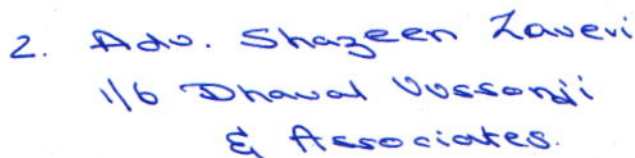 2. Adv. Shazeen Zaveri
i/b Dhaval Vussonji
& Associates.